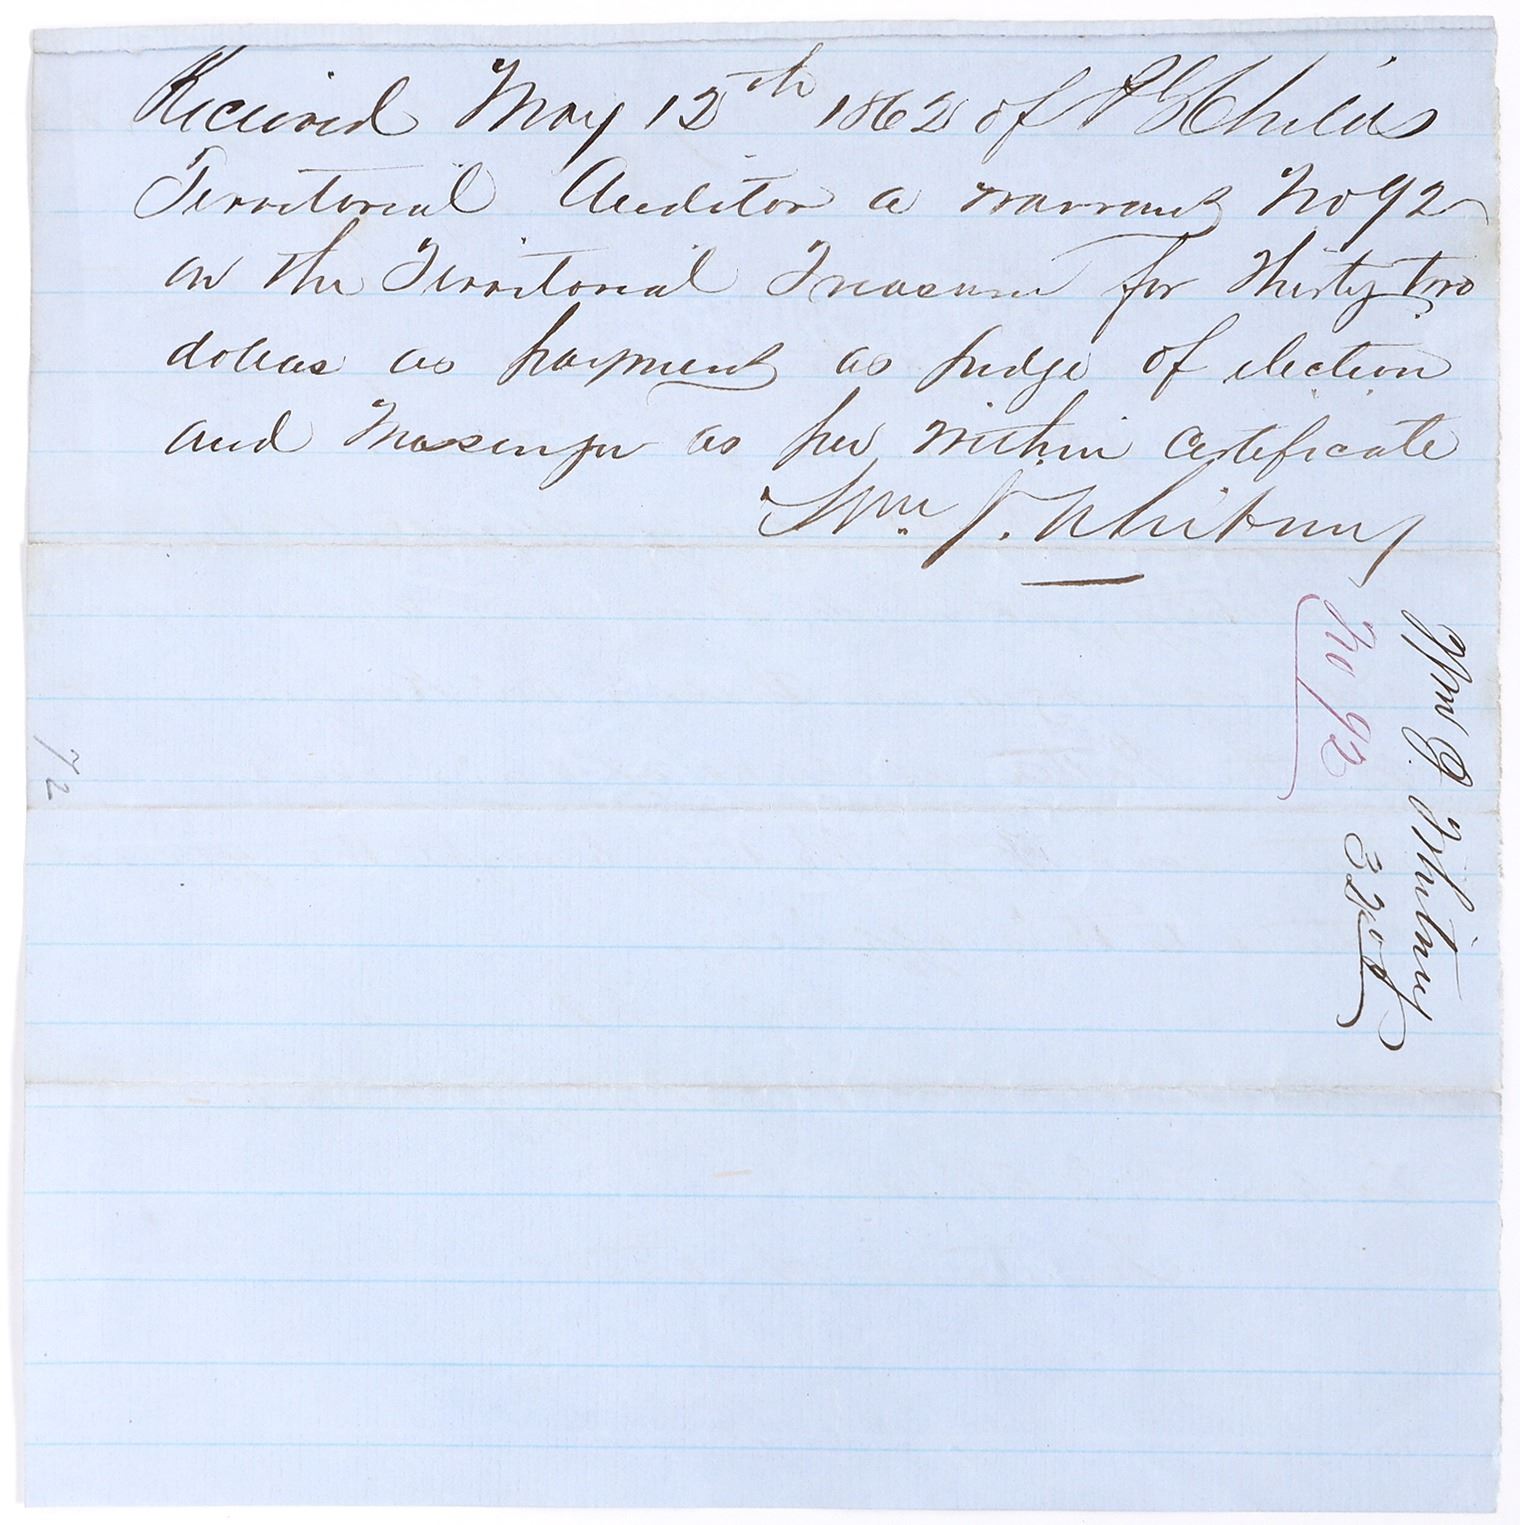 Received May 12th 1862 of J G Childs
Territorial Auditor a warrant No 92
on the Territorial Treasure for Thirty two
doleas as payment as judge of election
and Massenger as per within certificate
Wm J. Whitney
Wm J Whitney
No 92
32.00
92